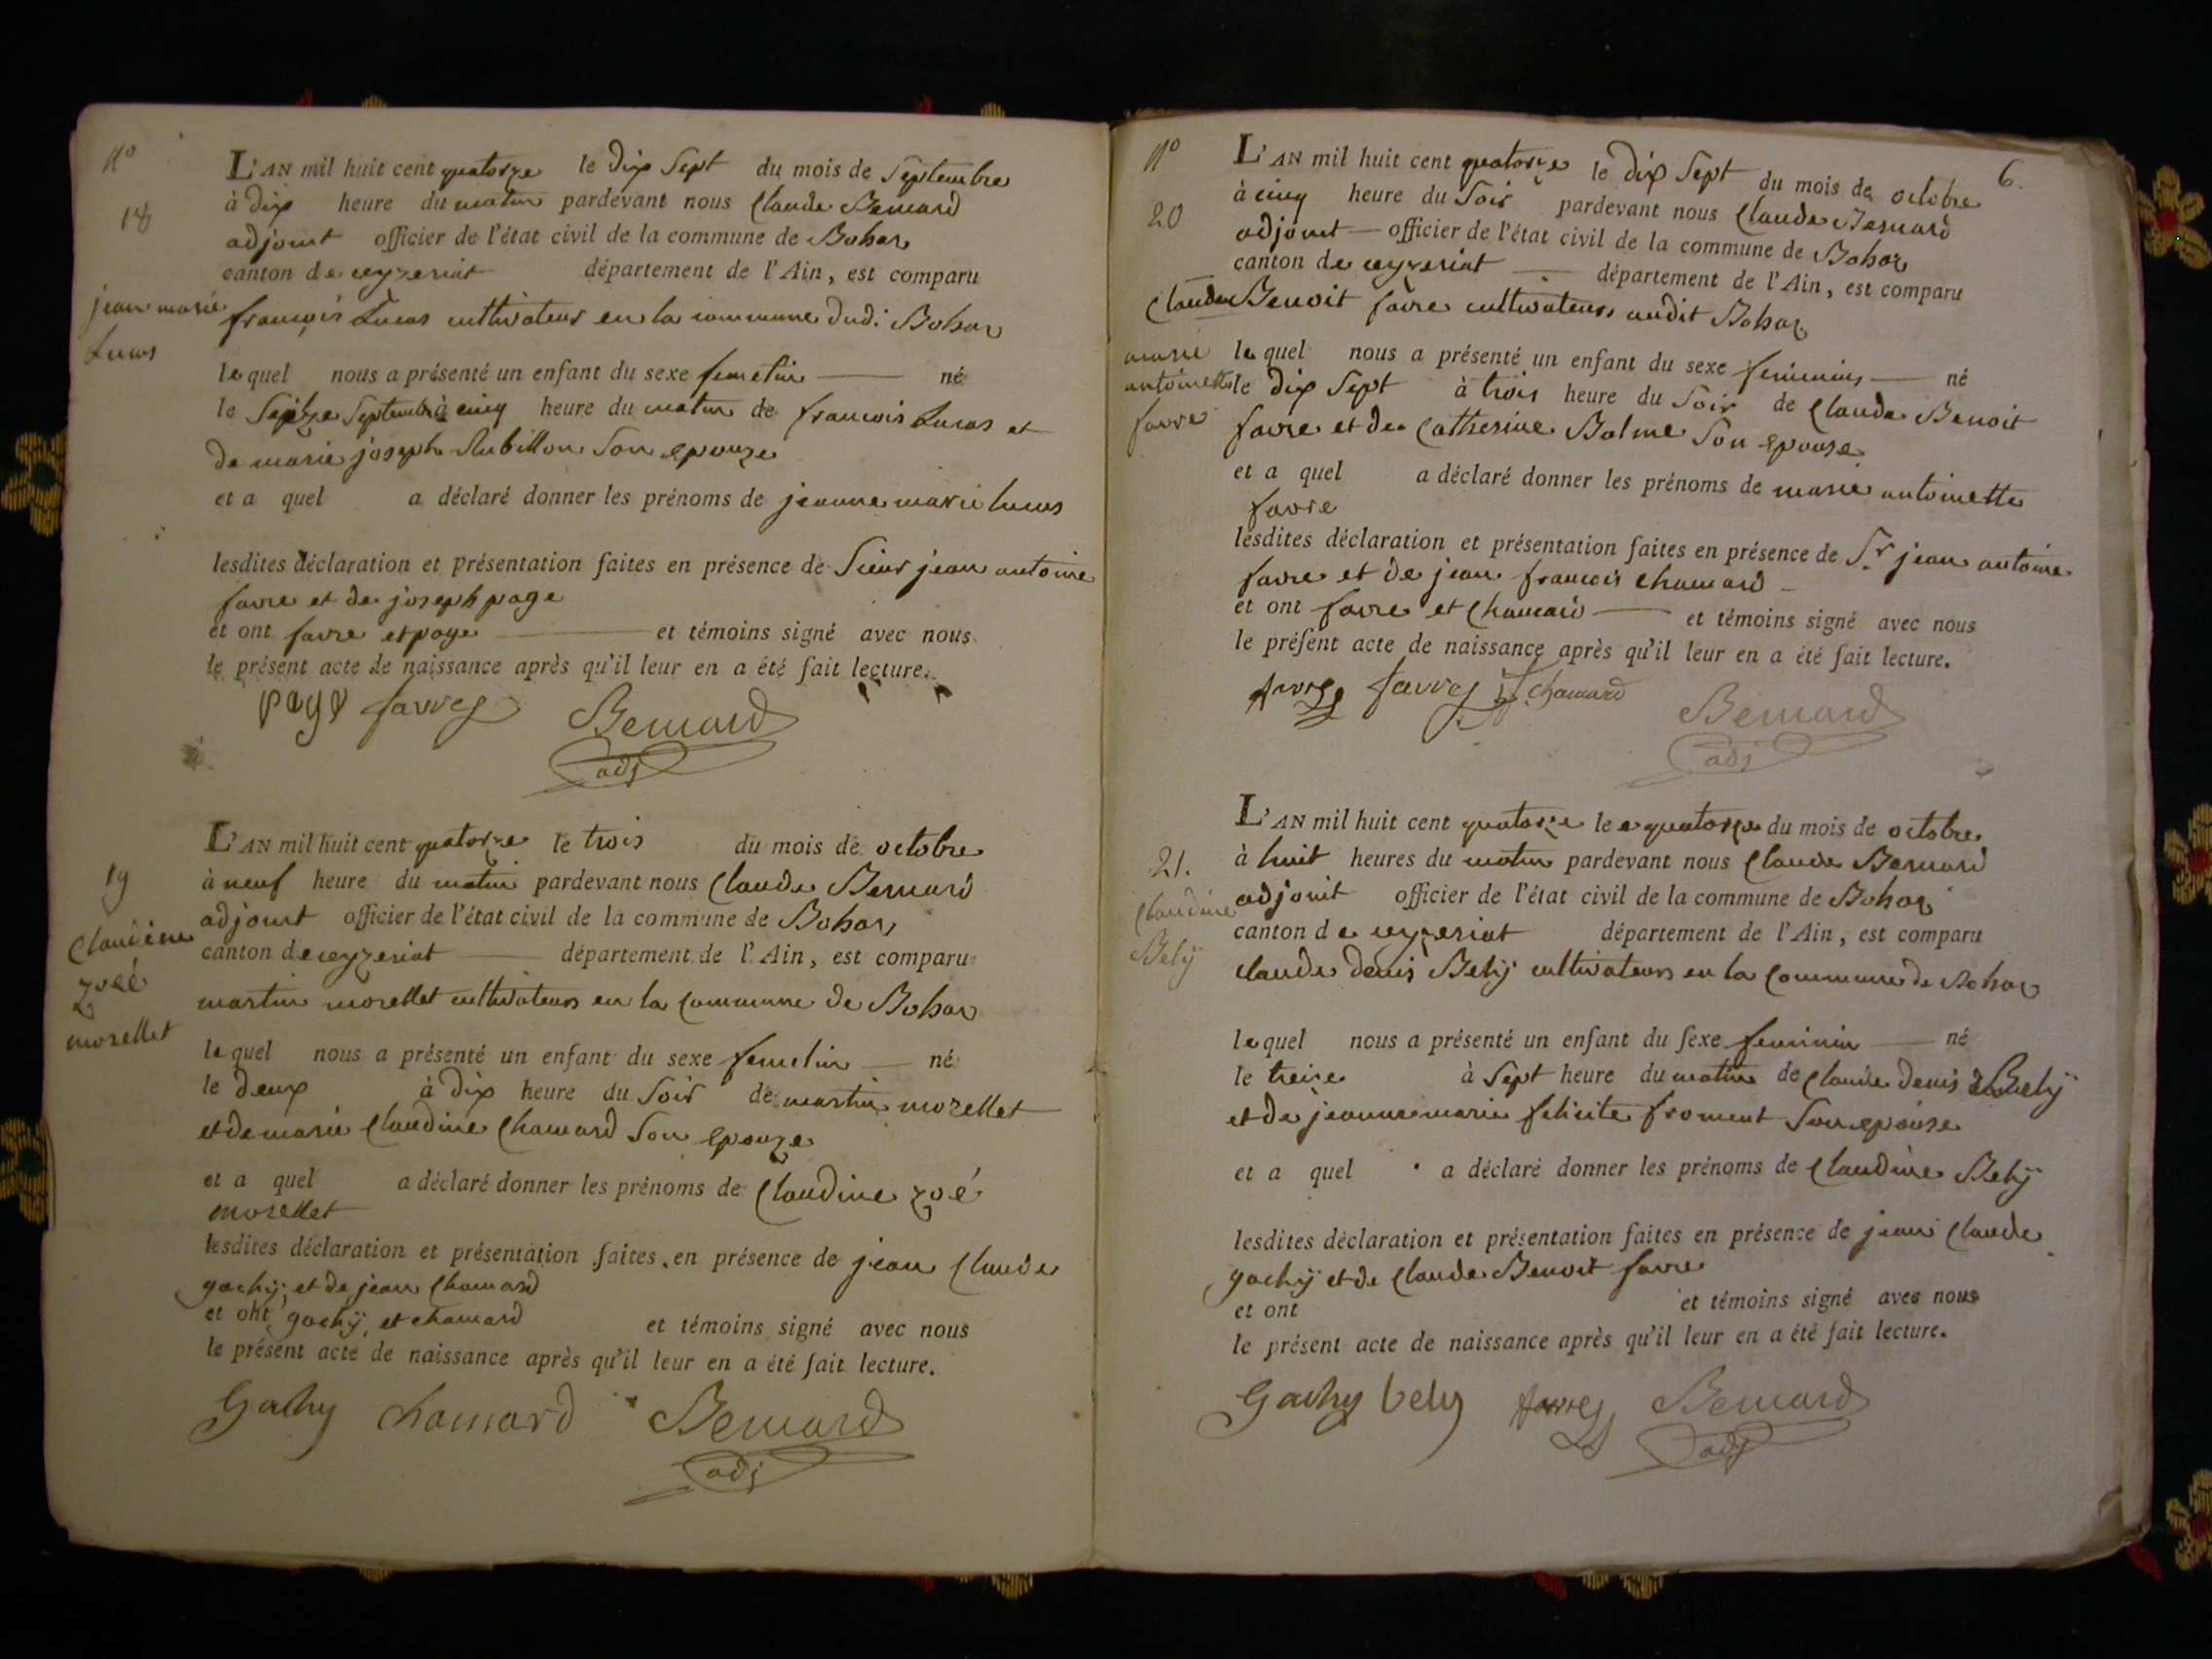 N°
18
jean marie
Lucas
L'AN mil huit cent quatorze le dix Sept du mois de Septembre
à dix heure du matin pardevant nous Claude Bernard
adjoint officier de l'état civil de la commune de Bohas
canton de ceyzeriat département de l'Ain, est comparu
françois Lucas cultivateur en la commune dud. Bohas
lequel nous a présenté un enfant du sexe femelin né
le Seitze Septembre à cinq heure du matin de francois Lucas et
de marie joseph Rubillon Son epouze
et a quel a déclaré donner les prénoms de jeanne marie lucas
lesdites déclaration et présentation faites en présence de Sieur jean antoine
favre et de joseph page
et ont favre et page et témoins signé avec nous
le présent acte de naissance après qu'il leur en a été fait lecture.
page favre Bernard
adj
19
Claudine
zoeé
morellet
L'AN mil huit cent quatorze le trois du mois de octobre
à neuf heure du matin pardevant nous Claude Bernard
adjoint officier de l'état civil de la commune de Bohas
canton de ceyzeriat département de l'Ain, est comparu
martin morellet cultivateur en la Commune de Bohas
lequel nous a présenté un enfant du sexe femelin né
le deux à dix heure du Soir de martin morellet
et de marie Claudine Chamard Son Epouze
et a quel a déclaré donner les prénoms de Claudine zoé
morellet
lesdites déclaration et présentation faites en présence de jean Claude
gachÿ, et de jean Chamard
et ont gachÿ, et chamard et témoins signé avec nous
le présent acte de naissance après qu'il leur en a été fait lecture.
Gachy chamard Bernard
adj
6.
N°
20
marie
antoinette
favre
L'AN mil huit cent quatorze le dix Sept du mois de octobre
à cinq heure du Soir pardevant nous Claude Bernard
adjoint officier de l'état civil de la commune de Bohas
canton de ceyzeriat département de l'Ain, est comparu
Claude Benoit favre cultivateur audit Bohas
lequel nous a présenté un enfant du sexe feminin né
le dix Sept à trois heure du Soir de Claude Benoit
favre et de Catherine Balme Son epouse
et a quel a déclaré donner les prénoms de marie antoinette
favre
lesdites déclaration et présentation faites en présence de Sr. jean antoine
favre et de jean francois chamard
et ont favre et Chamard et témoins signé avec nous
le présent acte de naissance après qu'il leur en a été fait lecture.
favre favre chamard Bernard
adj
21.
Claudine
Belÿ
L'AN mil huit cent quatorze le quatorze du mois de octobre
à huit heures du matin pardevant nous Claude Bernard
adjoint officier de l'état civil de la commune de Bohas
canton de ceyzeriat département de l'Ain, est comparu
claude denis Belÿ cultivateur en la Commune de Bohas
lequel nous a présenté un enfant du sexe feminin né
le treize à Sept heure du matin de Claude denis Belÿ
et de jeanne marie felicite froment Son epouse
et a quel a déclaré donner les prénoms de Claudine Belÿ
lesdites déclaration et présentation faites en présence de jean Claude
gachÿ et de Claude Benoit favre
et ont et témoins signé avec nous
le présent acte de naissance après qu'il leur en a été fait lecture.
Gachy bely favre Bernard
adj